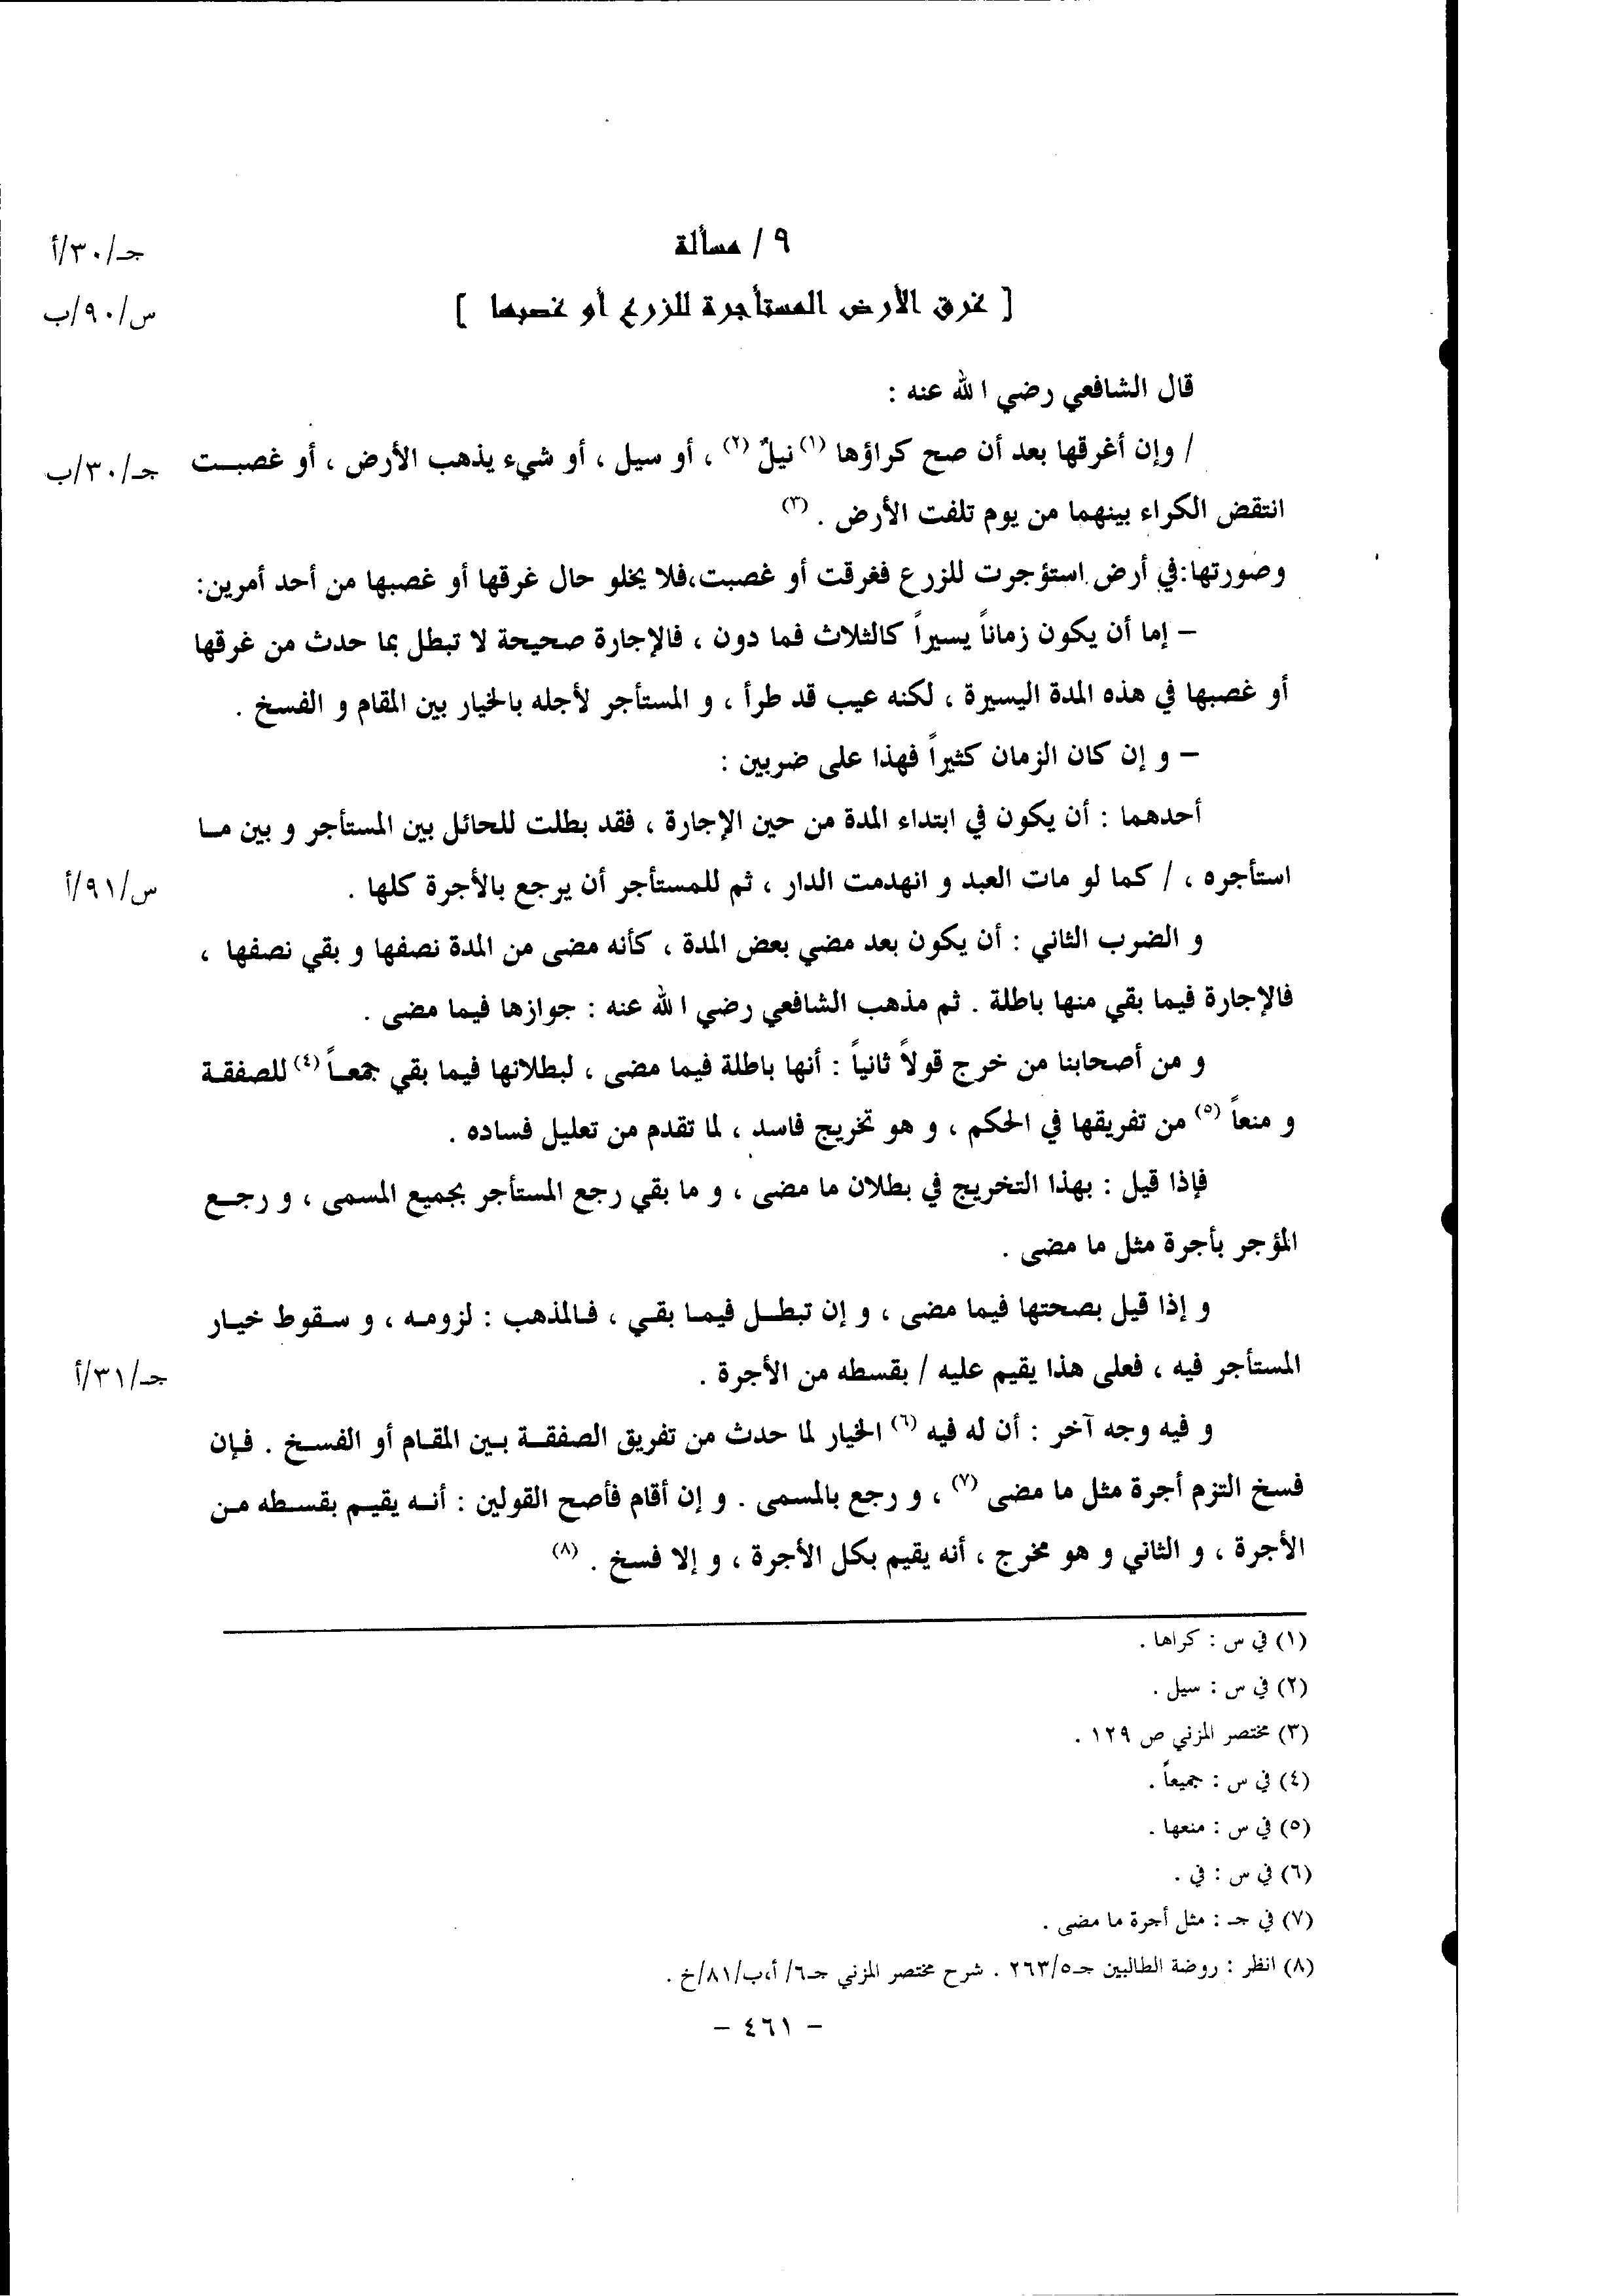 ٩ / مسألة
جـ/٣٠/أ
[ غرق الأرض المستأجرة للزرع أو غصبها ]
س/٩٠/ب
قال الشافعي رضي الله عنه :
/ وإن أغرقها بعد أن صح كراؤها (١) نيلٌ (٢) ، أو سيل ، أو شيء يذهب الأرض ، أو غصبـت
جـ/٣٠/ب
انتقض الكراء بينهما من يوم تلفت الأرض . (٣)
وصورتها:في أرض استؤجرت للزرع فغرقت أو غصبت،فلا يخلو حال غرقها أو غصبها من أحد أمرين:
– إما أن يكون زماناً يسيراً كالثلاث فما دون ، فالإجارة صحيحة لا تبطل بما حدث من غرقها
أو غصبها في هذه المدة اليسيرة ، لكنه عيب قد طرأ ، و المستأجر لأجله بالخيار بين المقام و الفسخ .
– و إن كان الزمان كثيراً فهذا على ضربين :
أحدهما : أن يكون في ابتداء المدة من حين الإجارة ، فقد بطلت للحائل بين المستأجر و بين مـا
استأجره ، / كما لو مات العبد و انهدمت الدار ، ثم للمستأجر أن يرجع بالأجرة كلها .
س/٩١/أ
و الضرب الثاني : أن يكون بعد مضي بعض المدة ، كأنه مضى من المدة نصفها و بقي نصفها ،
فالإجارة فيما بقي منها باطلة . ثم مذهب الشافعي رضي الله عنه : جوازها فيما مضى .
و من أصحابنا من خرج قولاً ثانياً : أنها باطلة فيما مضى ، لبطلانها فيما بقي جمعـاً (٤) للصفقـة
و منعاً (٥) من تفريقها في الحكم ، و هو تخريج فاسد ، لما تقدم من تعليل فساده .
فإذا قيل : بهذا التخريج في بطلان ما مضى ، و ما بقي رجع المستأجر بجميع المسمى ، و رجـع
المؤجر بأجرة مثل ما مضى .
و إذا قيل بصحتها فيما مضى ، و إن تبطـل فيمـا بقـي ، فـالمذهب : لزومـه ، و سـقوط خيـار
المستأجر فيه ، فعلى هذا يقيم عليه / بقسطه من الأجرة .
جـ/٣١/أ
و فيه وجه آخر : أن له فيه (٦) الخيار لما حدث من تفريق الصفقـة بـين المقـام أو الفسـخ . فـإن
فسخ التزم أجرة مثل ما مضى (٧) ، و رجع بالمسمى . و إن أقام فأصح القولين : أنـه يقيـم بقسـطه مـن
الأجرة ، و الثاني و هو مخرج ، أنه يقيم بكل الأجرة ، و إلا فسخ . (٨)
(١) في س : كراها .
(٢) في س : سيل .
(٣) مختصر المزني ص ١٢٩ .
(٤) في س : جميعاً .
(٥) في س : منعها .
(٦) في س : في .
(٧) في جـ : مثل أجرة ما مضى .
(٨) انظر : روضة الطالبين جـ٢٦٣/٥ . شرح مختصر المزني جـ٦/ أ،ب/٨١/خ .
– ٤٦١ –